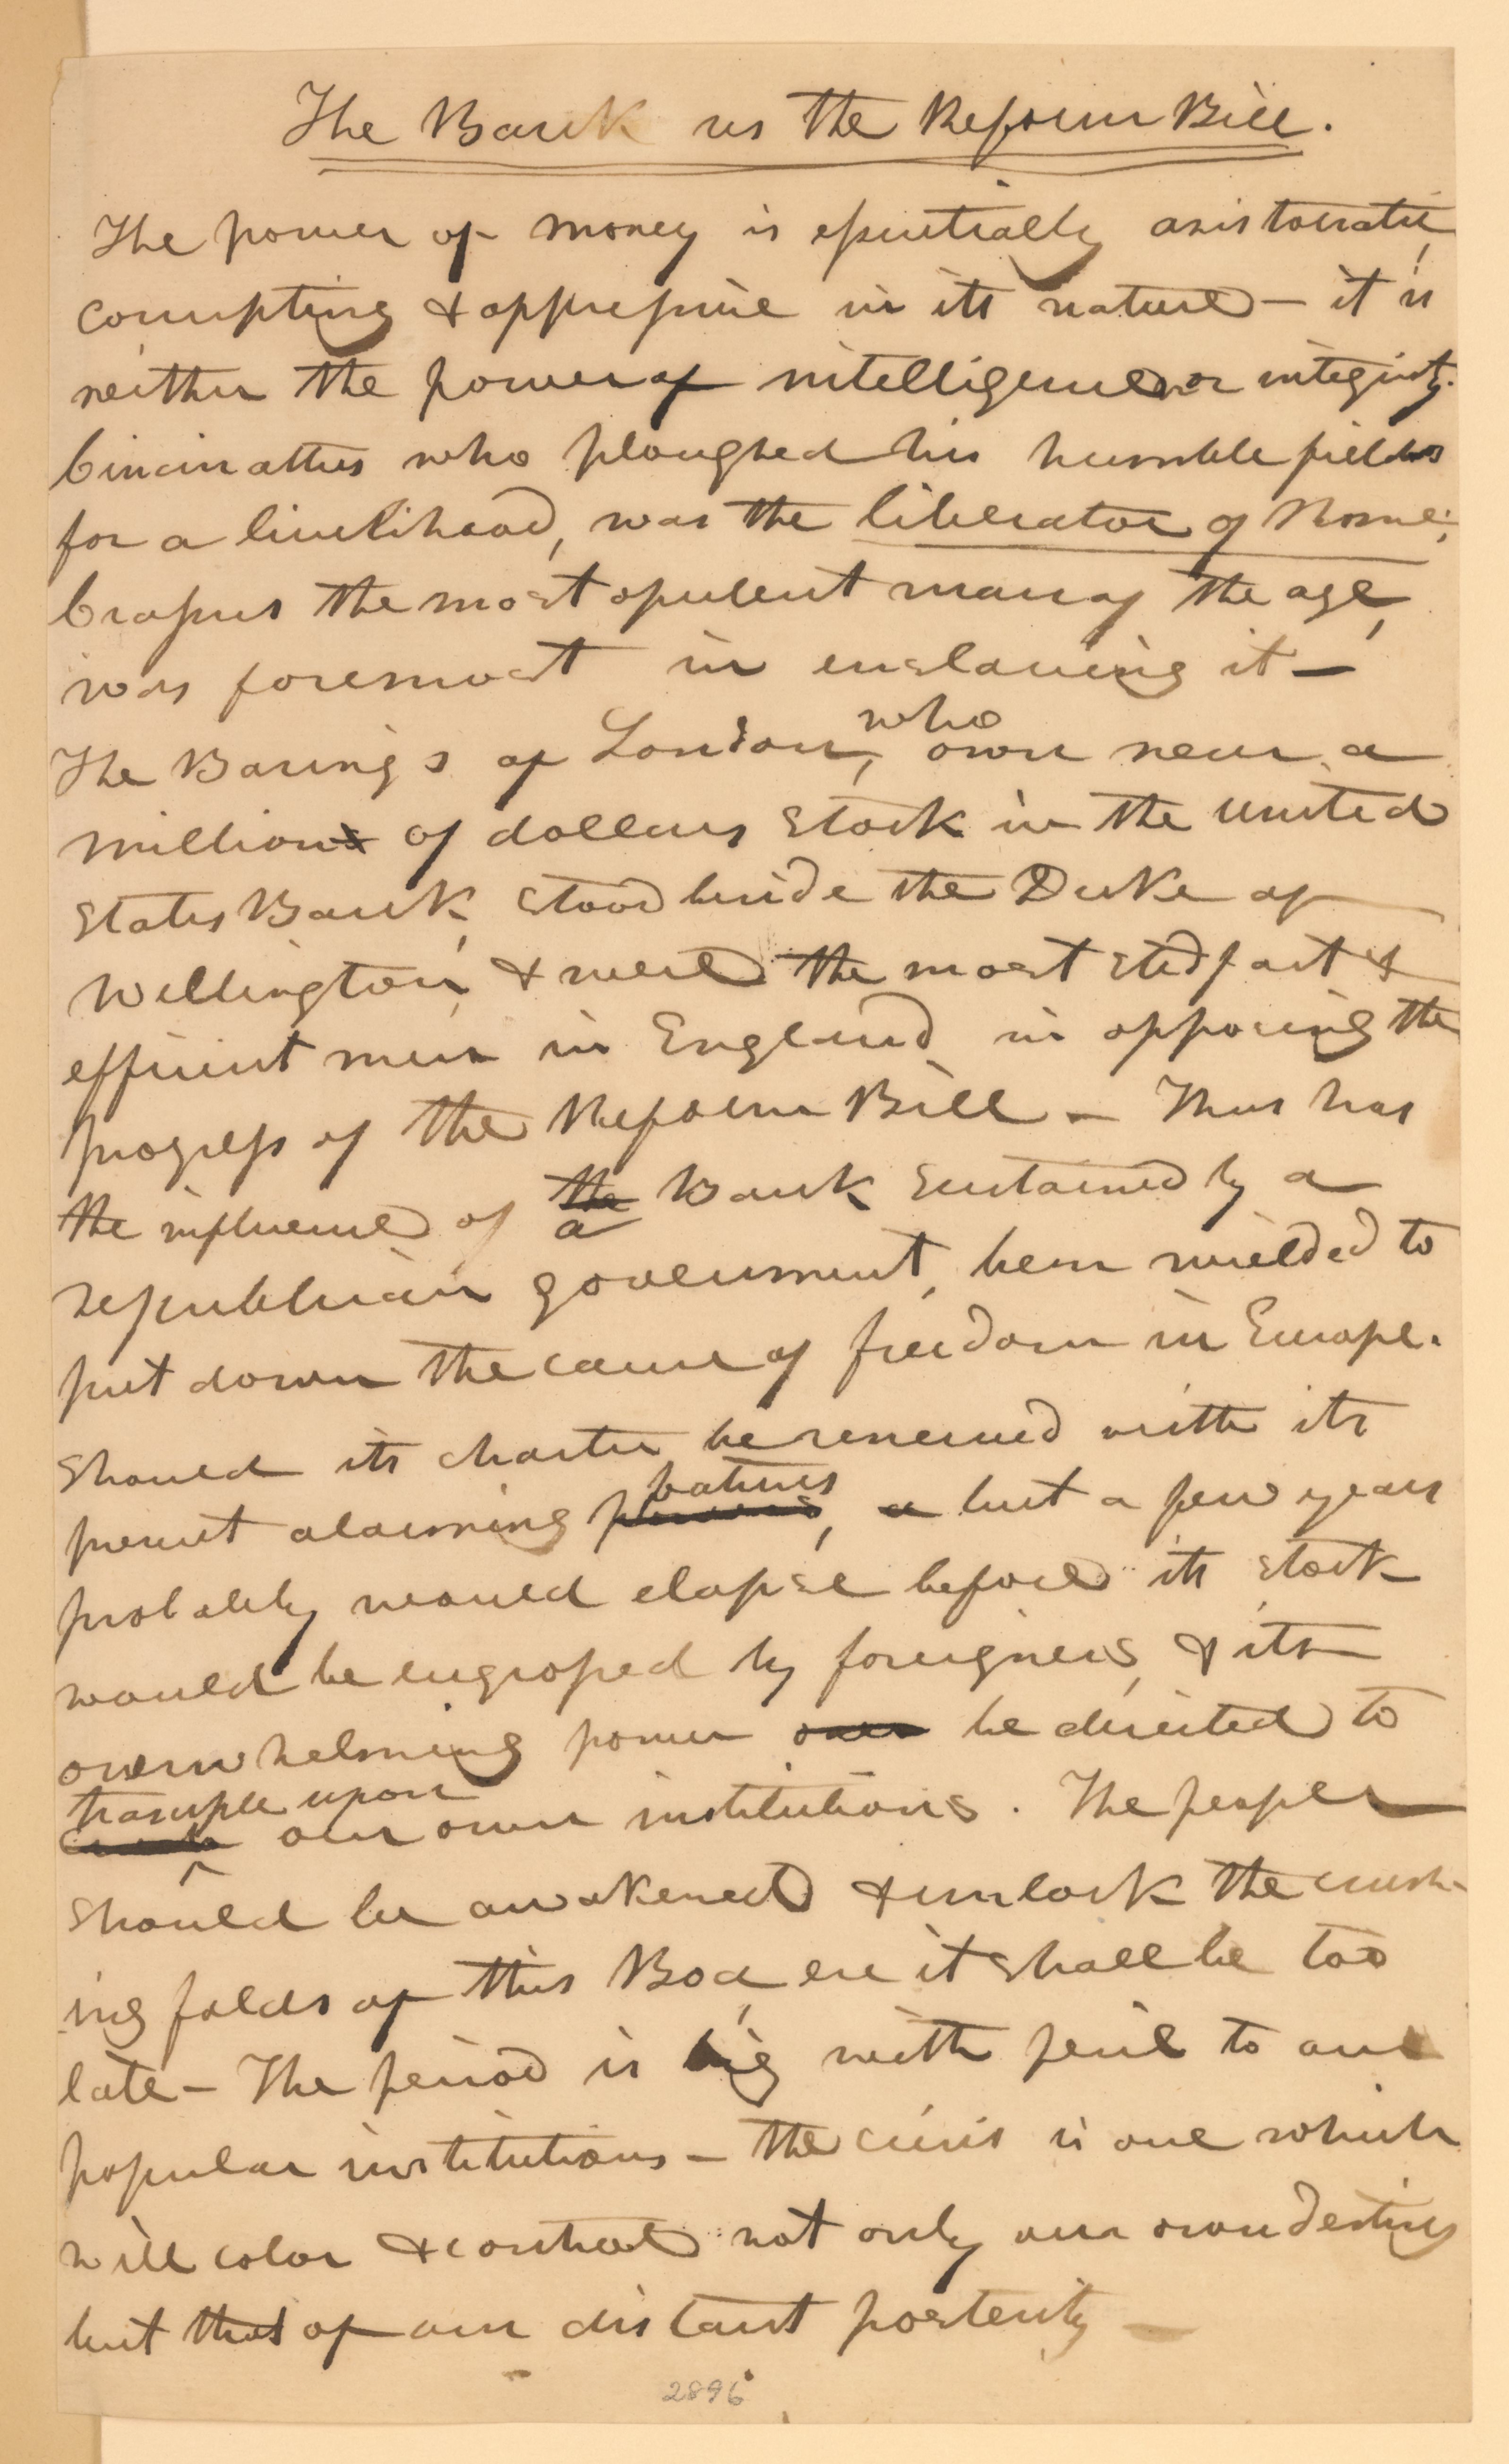 The Bank vs the Reform Bill.
The power of money is essentially aristocratic,
corrupting & oppressive in its nature — it is
neither the power of intelligence nor integrity.
Cincinattus who ploughed his humble fields
for a livelihood, was the liberator of Rome;
Crassus the most opulent man of the age,
was foremost in enslaving it —
who
The Barings of London, own near a
million of dollars stock in the United
States Bank, stood beside the Duke of
Wellington, & were the most stedfast &
efficient men in England in opposing the
progress of the Reform Bill — Thus has
the influence of the Bank sustained by a
a
republican government, been wielded to
put down the cause of freedom in Europe.
Should its charter be renewed with its
features
present alarming powers, a but a few years
probably would elapse before its stock
would be engrossed by foreigners, & its
overwhelming power over be directed to
trample upon
our own institutions. The people
should be awakened & unlock the crush-
ing folds of this Boa, ere it shall be too
late — The period is big with peril to our
popular institutions — the crisis is one which
will color & control not only our own destiny
but that of our distant posterity —
2896